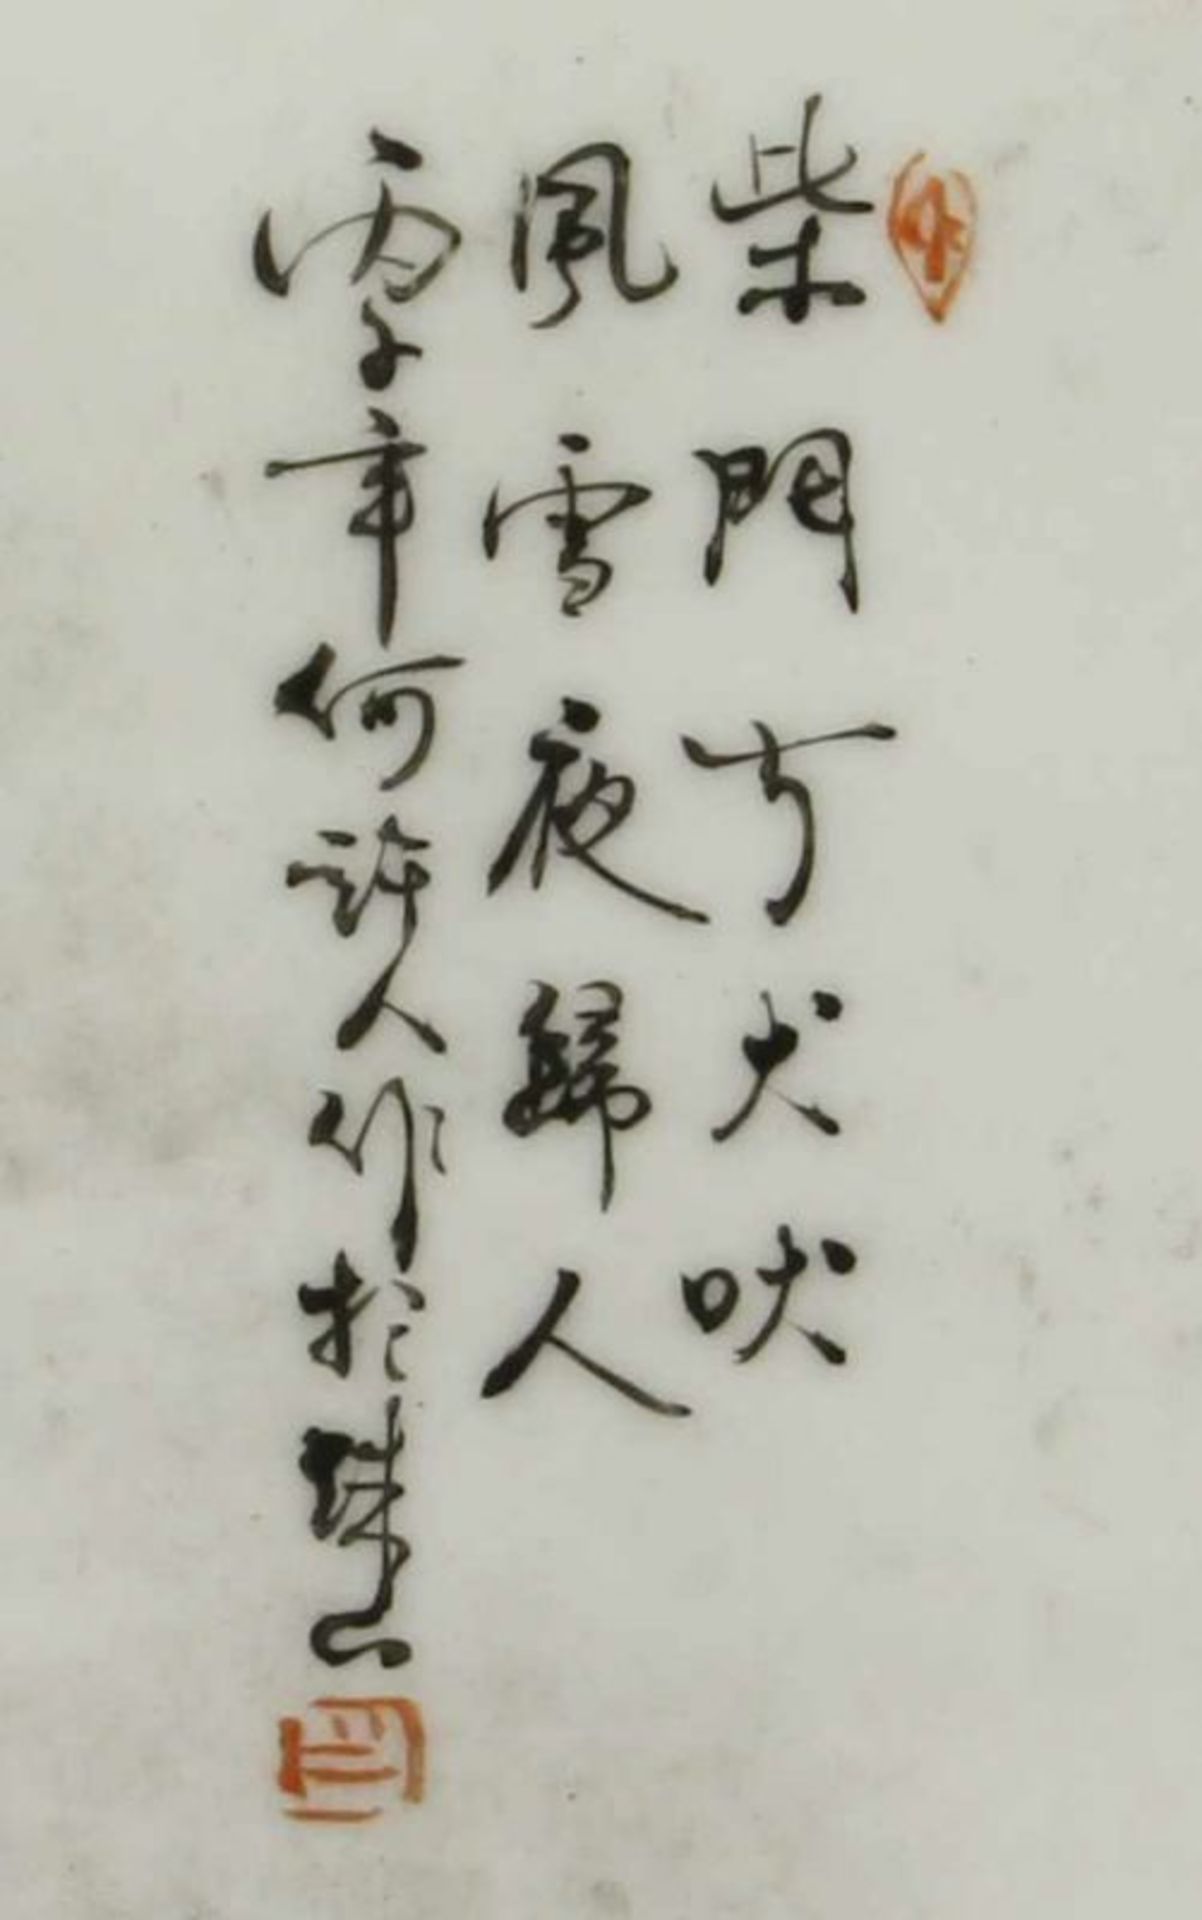 柴門㝉犬吠
風雪夜歸人
丙子年何許人作於珠山